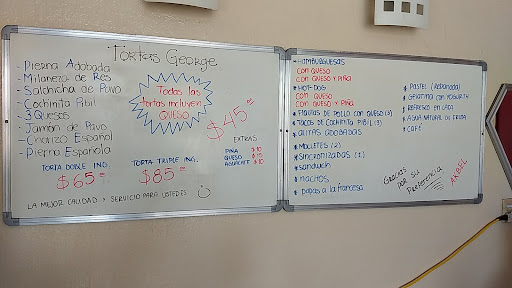 Tortas George
- Pierna Adobada
- Milanesa de Res
- Salchicha de Pavo
- Cochinita Pibil
- 3 Quesos
- Jamón de Pavo
- Chorizo Español
- Pierna Española
Todas las
tortas incluyen
QUESO
$45
EXTRAS
PIÑA $10
QUESO $15
AGUACATE $10
TORTA DOBLE ING.
$65
TORTA TRIPLE ING.
$85
LA MEJOR CALIDAD Y SERVICIO PARA USTEDES
* HAMBURGUESAS
CON QUESO
CON QUESO Y PIÑA
* HOT-DOG
CON QUESO
CON QUESO Y PIÑA
* FLAUTAS DE POLLO CON QUESO (3)
* TACOS DE COCHINITA PIBIL (3)
* ALITAS ADOBADAS
* MOLLETES (2)
* SINCRONIZADAS (1)
* sandwich
* nachos
* papas a la francesa
* PASTEL (Rebanada)
* GELATINA CON YOGURTH
* REFRESCO EN LATA
* AGUA NATURAL DE FRUTA
* CAFÉ
Gracias
por su
Preferencia